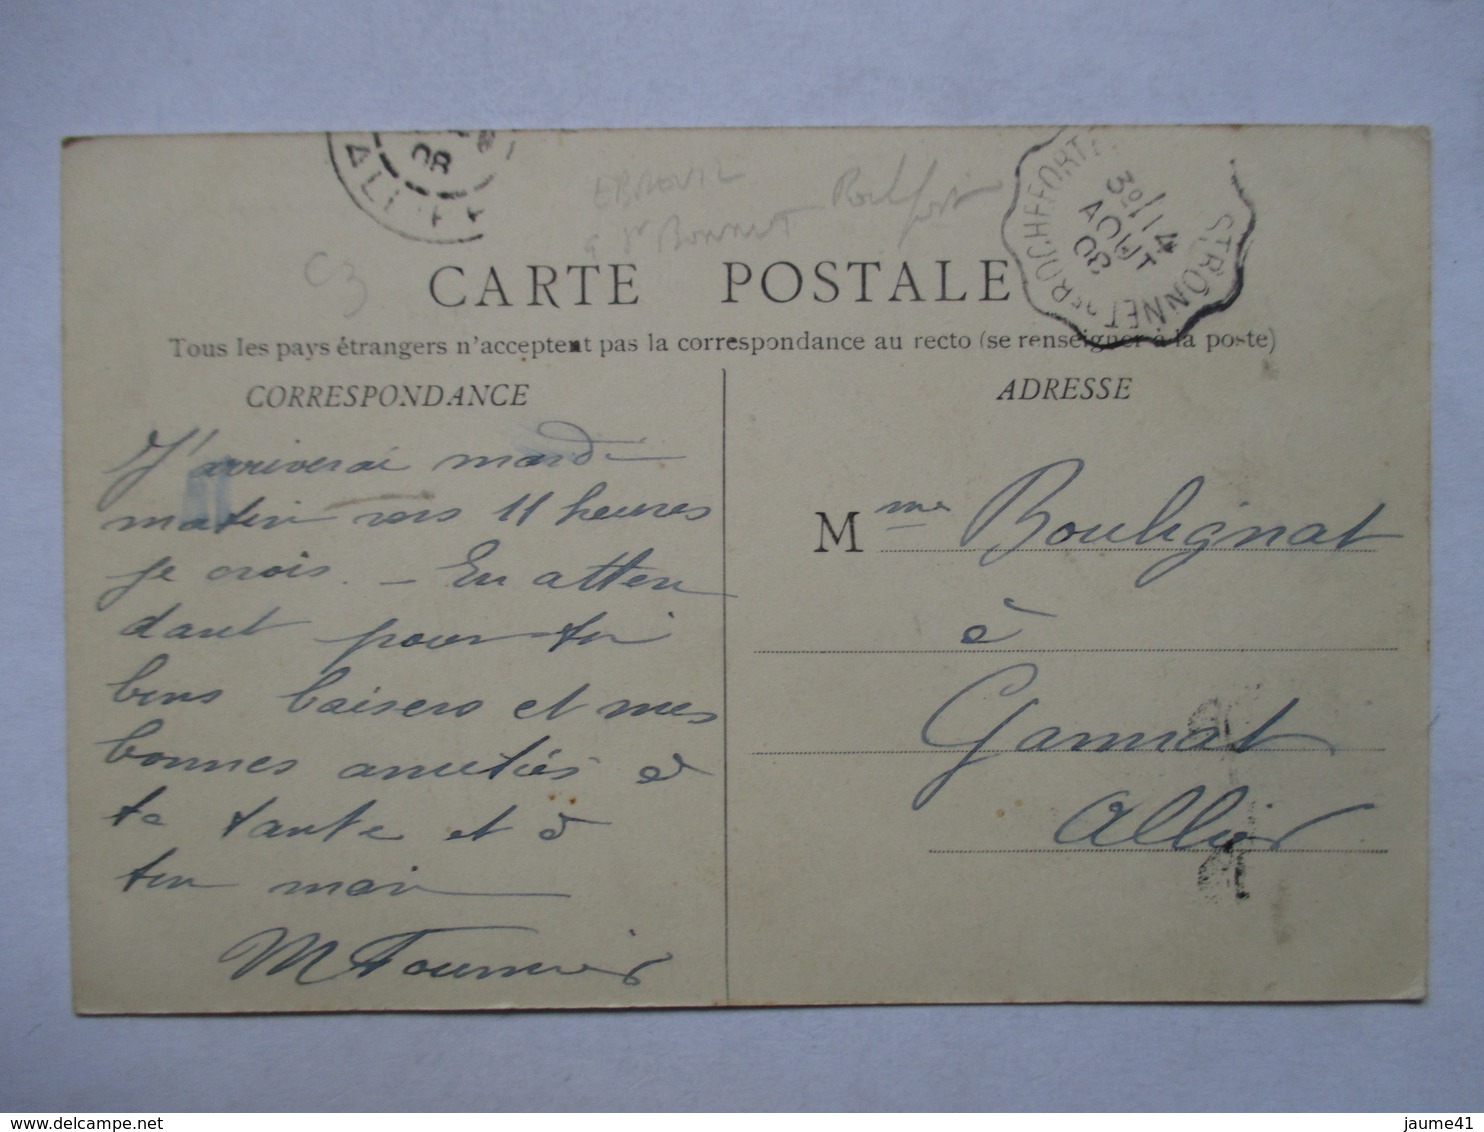 ALLIER
08
EBREUIL
à St BONNET
Rochefort
C3
ST BONNET DE ROCHEFORT
30 / 14
AOUT
08
CARTE POSTALE
Tous les pays étrangers n'acceptent pas la correspondance au recto (se renseigner à la poste)
CORRESPONDANCE
ADRESSE
J'arriverai mardi
matin vers 11 heures
je crois. – En atten
dant pour toi
bons baisers et mes
bonnes amitiés à
ta tante et à
ton mari
M Fournier
Mme Boulignat
à
Gannat
Allier
jaume41